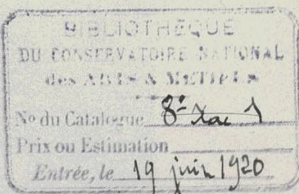 BIBLIOTHÈQUE
DU CONSERVATOIRE NATIONAL
des ARTS & MÉTIERS
Nº du Catalogue 8º Xae 1
Prix ou Estimation
Entrée, le 19 juin 1920